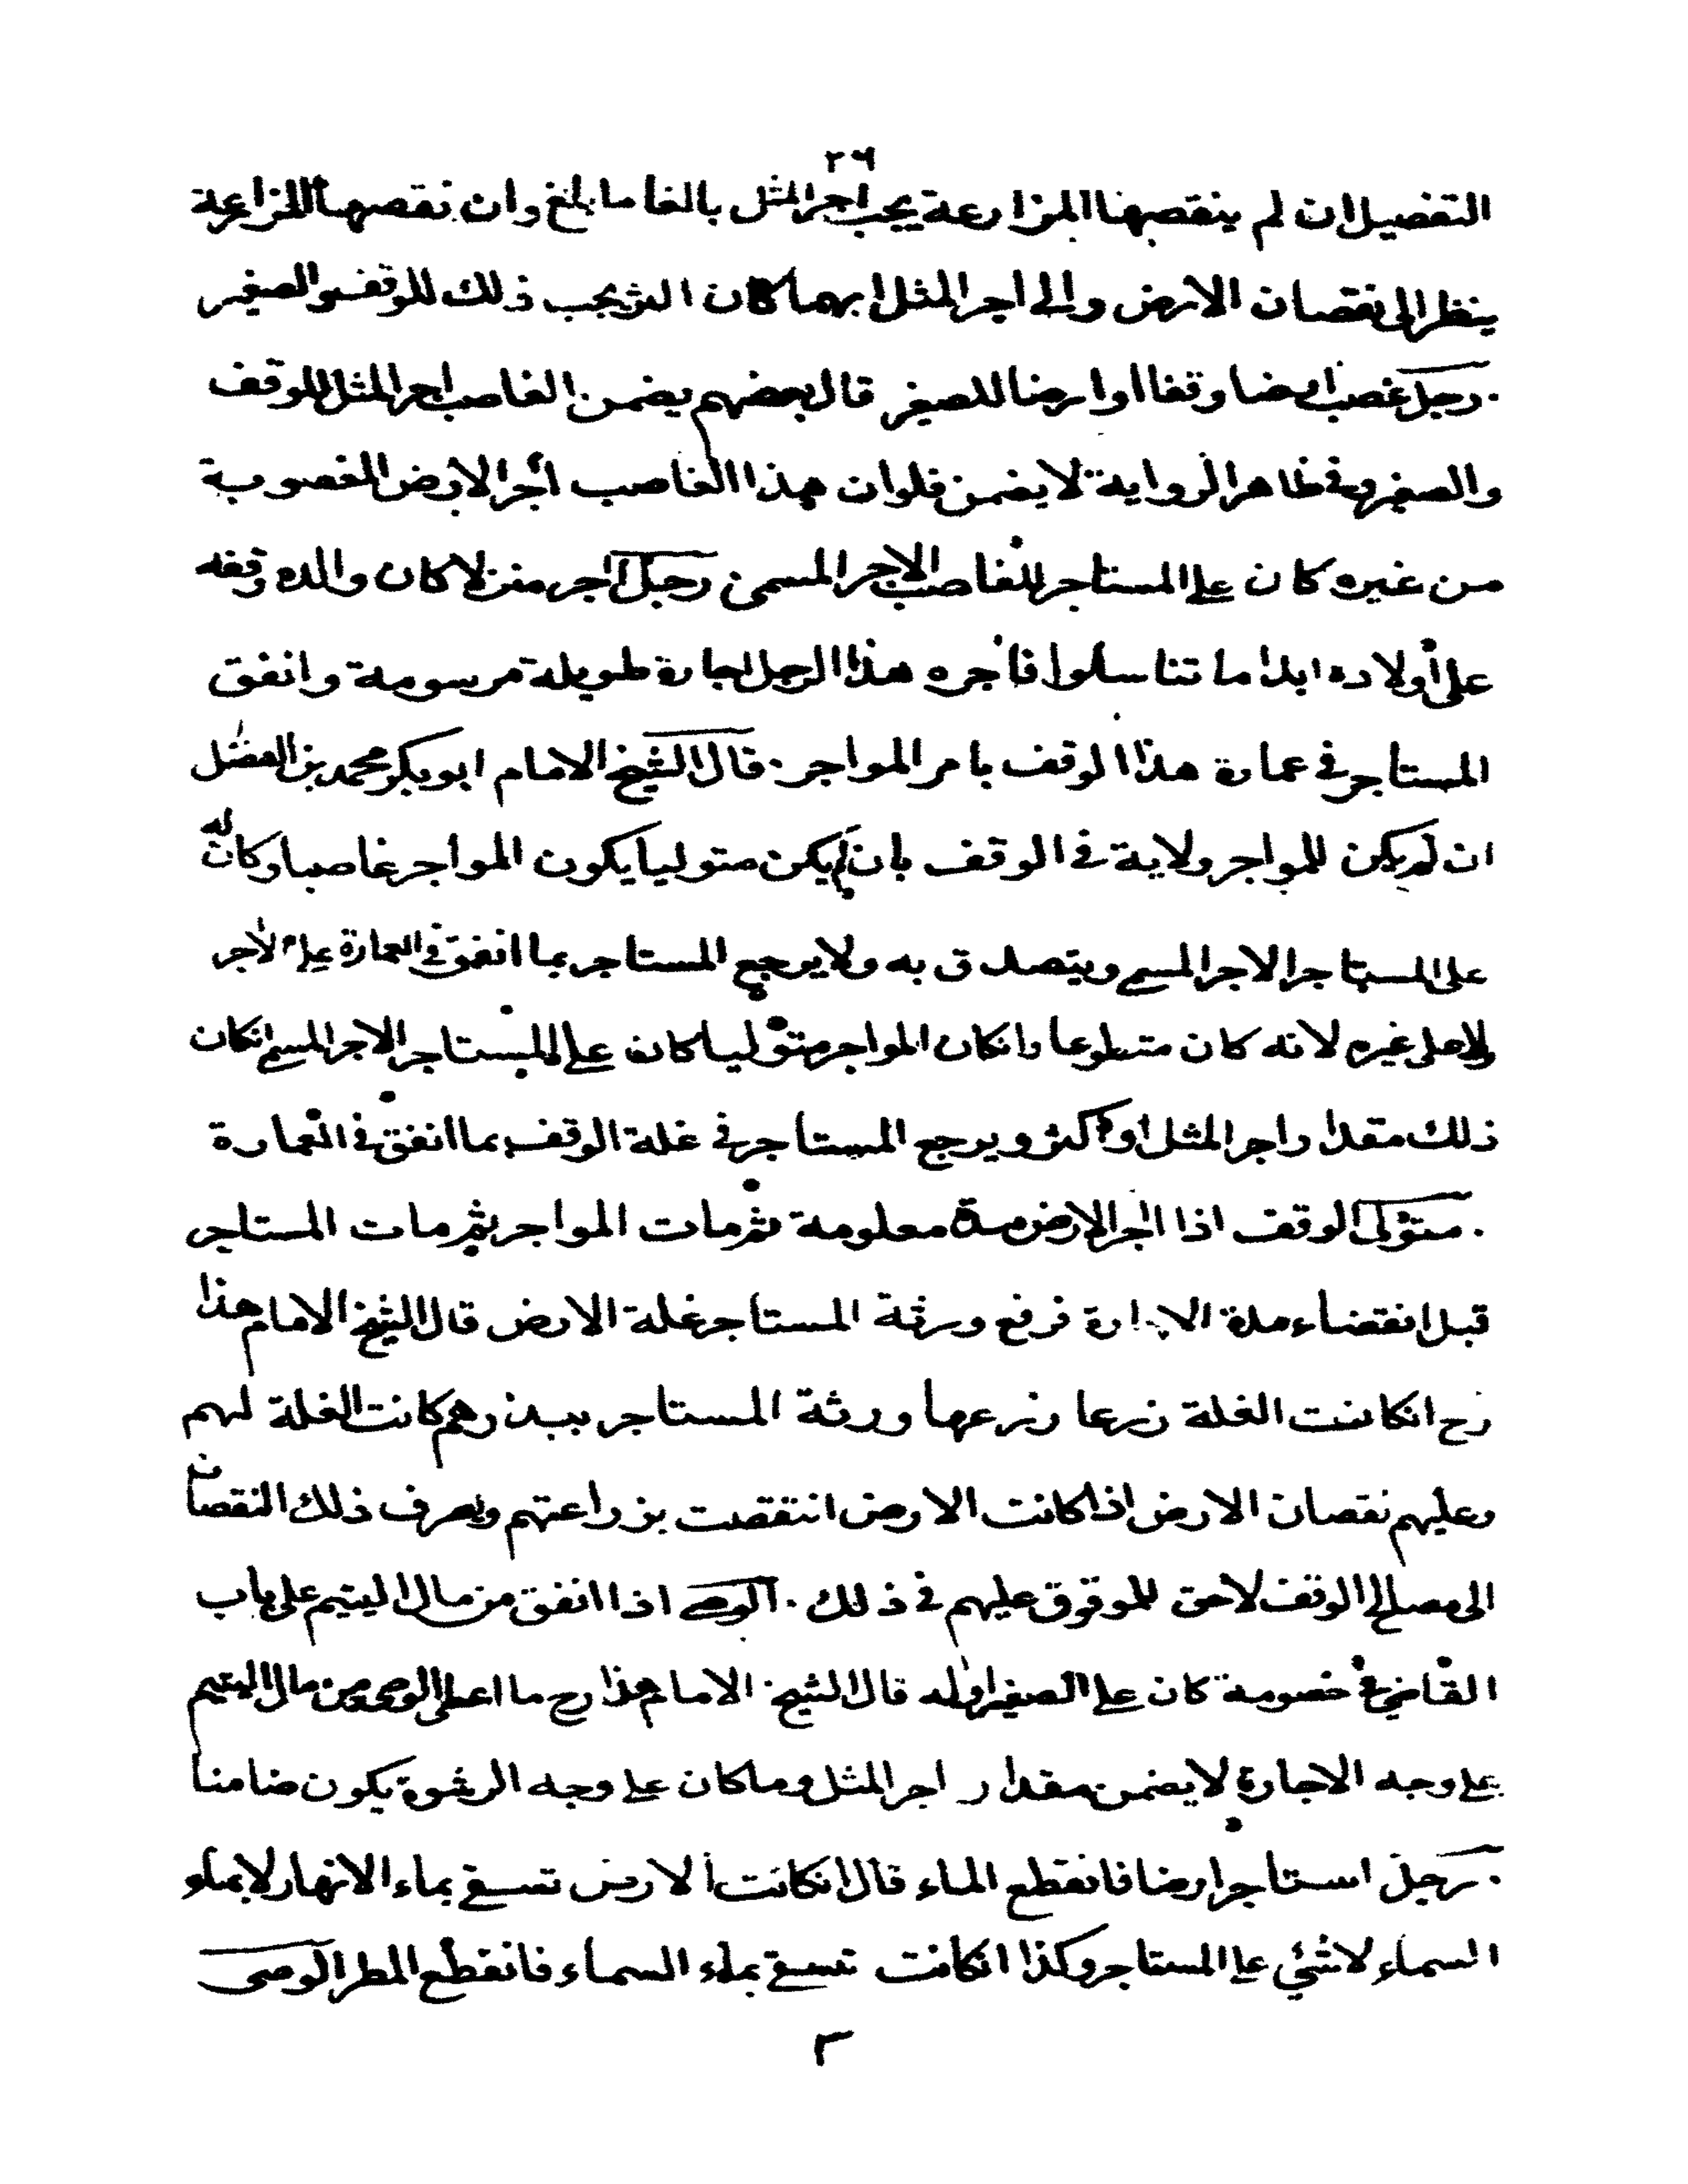 ٢٦
التفصيل ان لم ينقصها المزارعة يجب اجر المثل بالغا ما بلغ وان نقصها المزاعة
ينظر الى نقصان الارض والى اجر المثل ايهما كان اكثر يجب ذلك للوقف والصغير
. رجل غصب ارضا وقفا او ارضا للصغير قال بعضهم يضمن الغاصب اجر المثل للوقف
والصغير وفي ظاهر الرواية لا يضمن فلو ان هذا الغاصب اجر الارض المغصوبة
من غيره كان على المستاجر للغاصب الاجر المسمى رجل اجر منزلا كان والده وقفه
على أولاده ابدا ما تناسلوا فأجره هذا الرجل اجارة طويلة مرسومة وانفق
المستاجر في عمارة هذا الوقف بامر المواجر . قال الشيخ الامام ابو بكر محمد بن الفضل
ان لم يكن للمواجر ولاية في الوقف بان لم يكن متوليا يكون المواجر غاصبا وكان له
على المستاجر الاجر المسمى ويتصدق به ولا يرجع المستاجر بما انفق في العمارة على الاجر
ولا على غيره لانه كان متطوعا وانكان المواجر متوليا كان على المستاجر الاجر المسمى انكان
ذلك مقدار اجر المثل او اكثر ويرجع المستاجر في غلة الوقف بما انفق في العمارة
. متولى الوقف اذا اجر الارض مدة معلومة ثم مات المواجر ثم مات المستاجر
قبل انقضاء مدة الاجارة فرفع ورثة المستاجر غلة الارض قال الشيخ الامام هذا
رح انكانت الغلة زرعا زرعها ورثة المستاجر ببذرهم كانت الغلة لهم
وعليهم نقصان الارض اذا كانت الارض انتقصت بزراعتهم ويصرف ذلك النقصان
الى مصالح الوقف لا حق للموقوق عليهم في ذلك . الوصى اذا انفق من مال اليتيم على باب
القاضي في خصومة كان على الصغير او له قال الشيخ الامام هذا رح ما اعطى الوصى من مال اليتيم
على وجه الاجارة لا يضمن مقدار اجر المثل وما كان على وجه الرشوة يكون ضامنا
. رجل استاجر ارضا فانقطع الماء قال انكانت الارض تسقى بماء الانهار لا بماء
السماء لا شئي على المستاجر وكذا انكانت تسقى بماء السماء فانقطع المطر الوصى